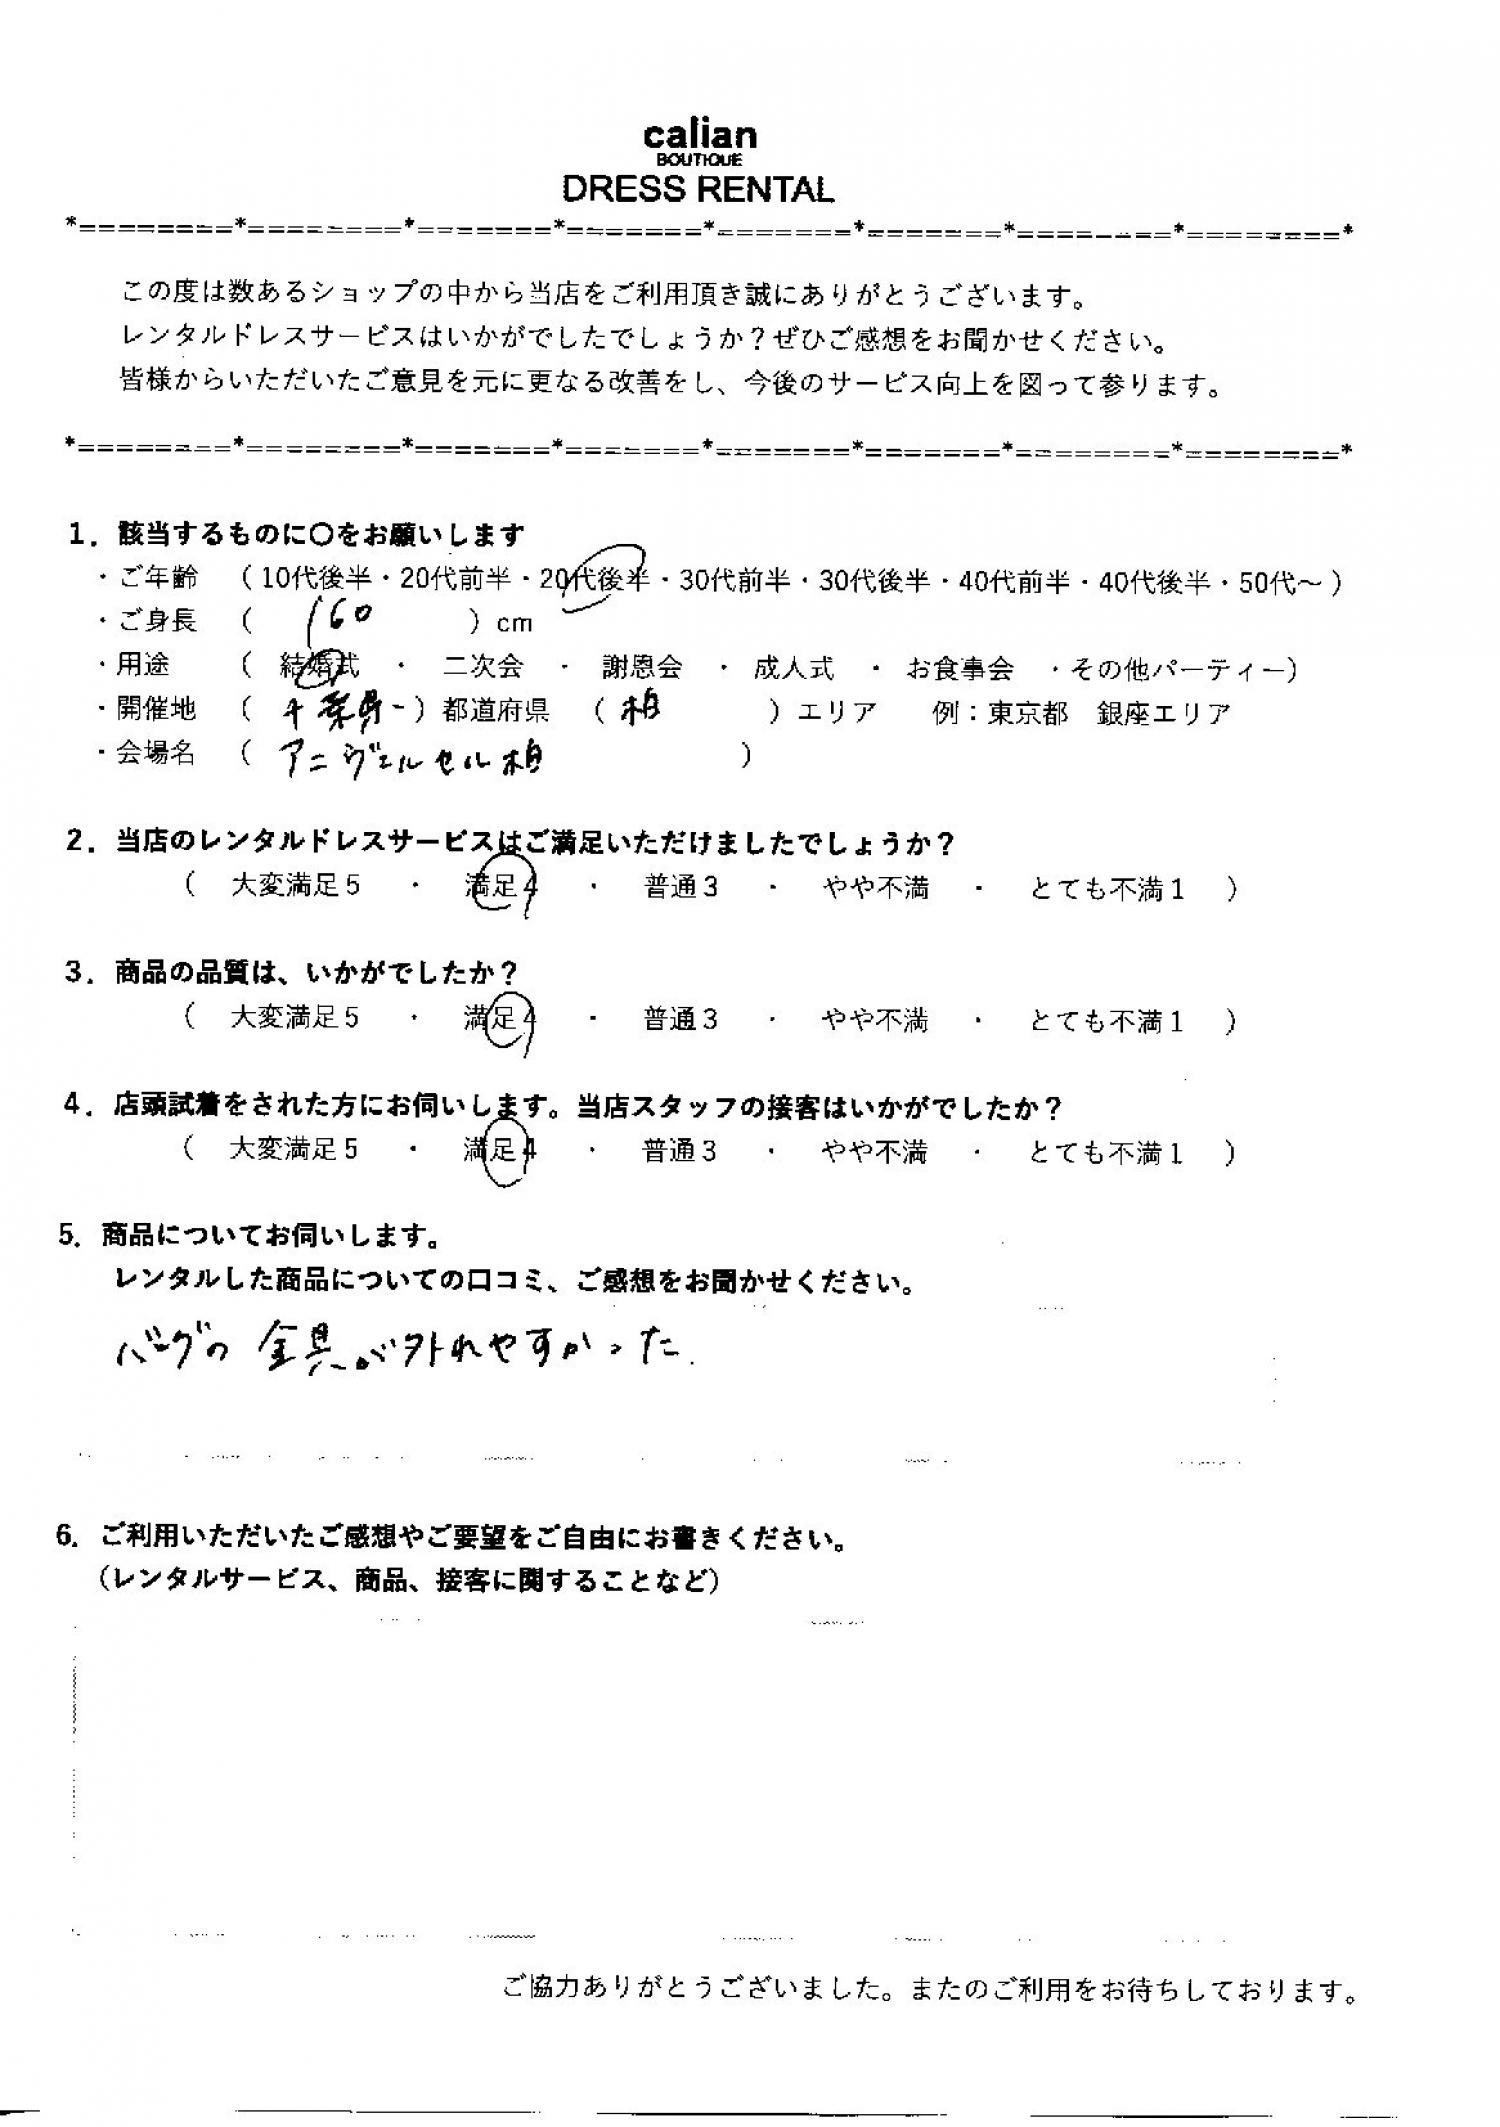 calian
BOUTIQUE
DRESS RENTAL
*========*========*=======*=======*=======*=======*========*========*
この度は数あるショップの中から当店をご利用頂き誠にありがとうございます。
レンタルドレスサービスはいかがでしたでしょうか?ぜひご感想をお聞かせください。
皆様からいただいたご意見を元に更なる改善をし、今後のサービス向上を図って参ります。
*========*========*=======*=======*=======*=======*========*========*
1. 該当するものに〇をお願いします
・ご年齢 ( 10代後半・20代前半・20代後半・30代前半・30代後半・40代前半・40代後半・50代〜 )
・ご身長 ( 160 ) cm
・用途 ( 結婚式 ・ 二次会 ・ 謝恩会 ・ 成人式 ・ お食事会 ・その他パーティー)
・開催地 ( 千葉県 ) 都道府県 ( 柏 ) エリア 例：東京都 銀座エリア
・会場名 ( アニヴェルセル柏 )
2. 当店のレンタルドレスサービスはご満足いただけましたでしょうか?
( 大変満足5 ・ 満足4 ・ 普通3 ・ やや不満 ・ とても不満1 )
3. 商品の品質は、いかがでしたか?
( 大変満足5 ・ 満足4 ・ 普通3 ・ やや不満 ・ とても不満1 )
4. 店頭試着をされた方にお伺いします。当店スタッフの接客はいかがでしたか?
( 大変満足5 ・ 満足4 ・ 普通3 ・ やや不満 ・ とても不満1 )
5. 商品についてお伺いします。
レンタルした商品についての口コミ、ご感想をお聞かせください。
バッグの金具が外れやすかった.
6. ご利用いただいたご感想やご要望をご自由にお書きください。
(レンタルサービス、商品、接客に関することなど)
ご協力ありがとうございました。またのご利用をお待ちしております。